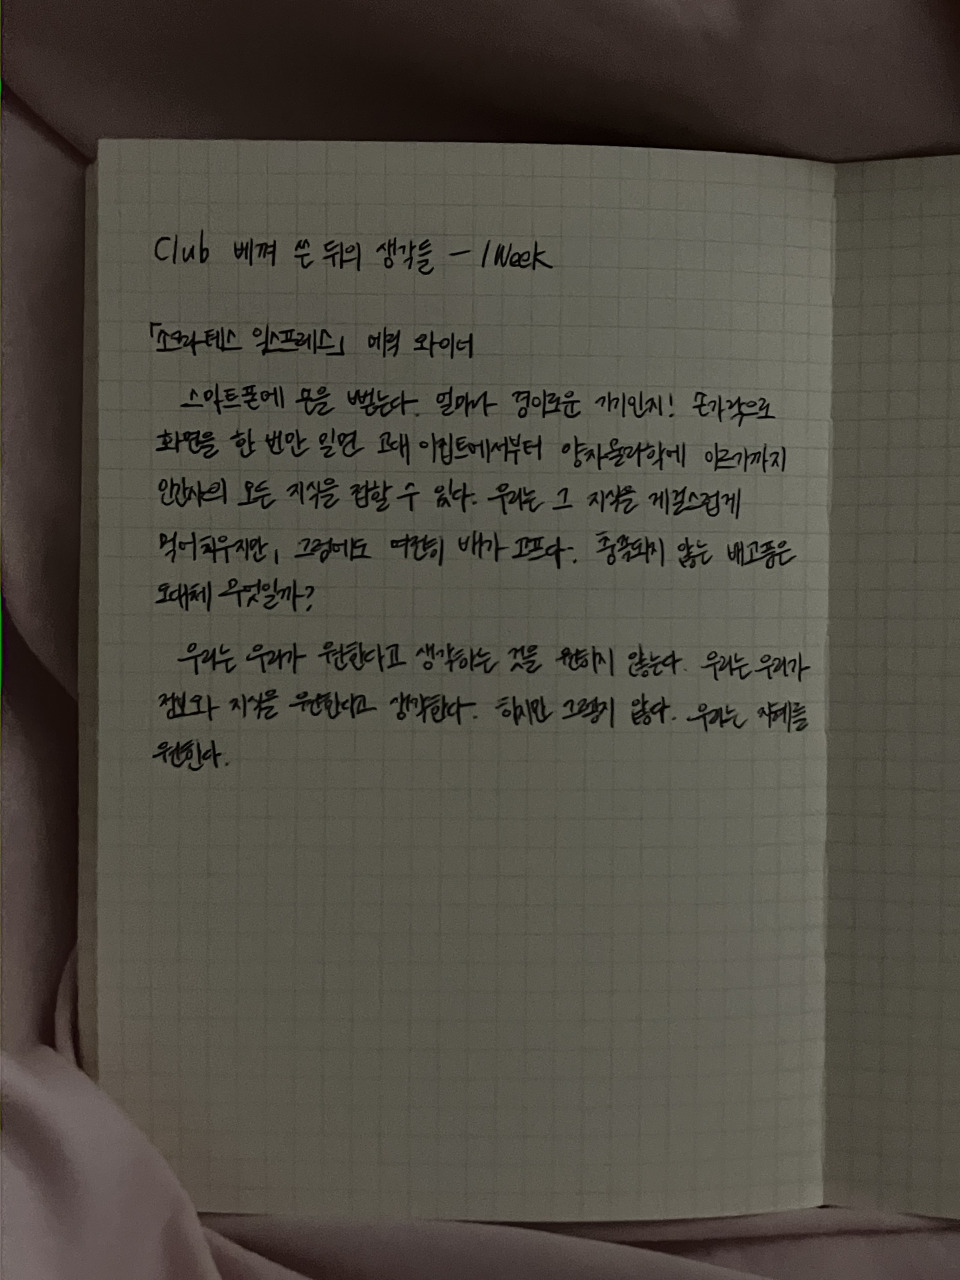 Club 베껴 쓴 뒤의 생각들 - 1 Week
「소크라테스 익스프레스」 에릭 와이너
스마트폰에 손을 뻗는다. 얼마나 경이로운 기기인지! 손가락으로
화면을 한 번만 밀면 고대 이집트에서부터 양자물리학에 이르기까지
인간사의 모든 지식을 접할 수 있다. 우리는 그 지식을 게걸스럽게
먹어치우지만, 그럼에도 여전히 배가 고프다. 충족되지 않는 배고픔은
도대체 무엇일까?
우리는 우리가 원한다고 생각하는 것을 원하지 않는다. 우리는 우리가
정보와 지식을 원한다고 생각한다. 하지만 그렇지 않다. 우리는 지혜를
원한다.